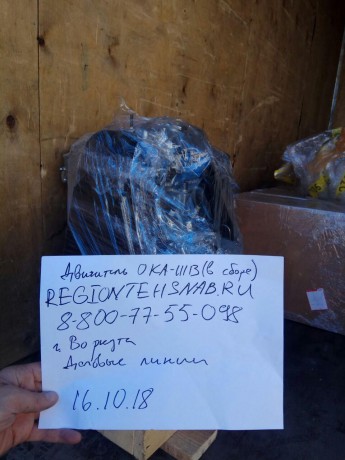 Двигатель ОКА-111В(в сборе)
REGIONTEHSNAB.RU
8-800-77-55-098
г. Воркута
Деловые линии
16.10.18